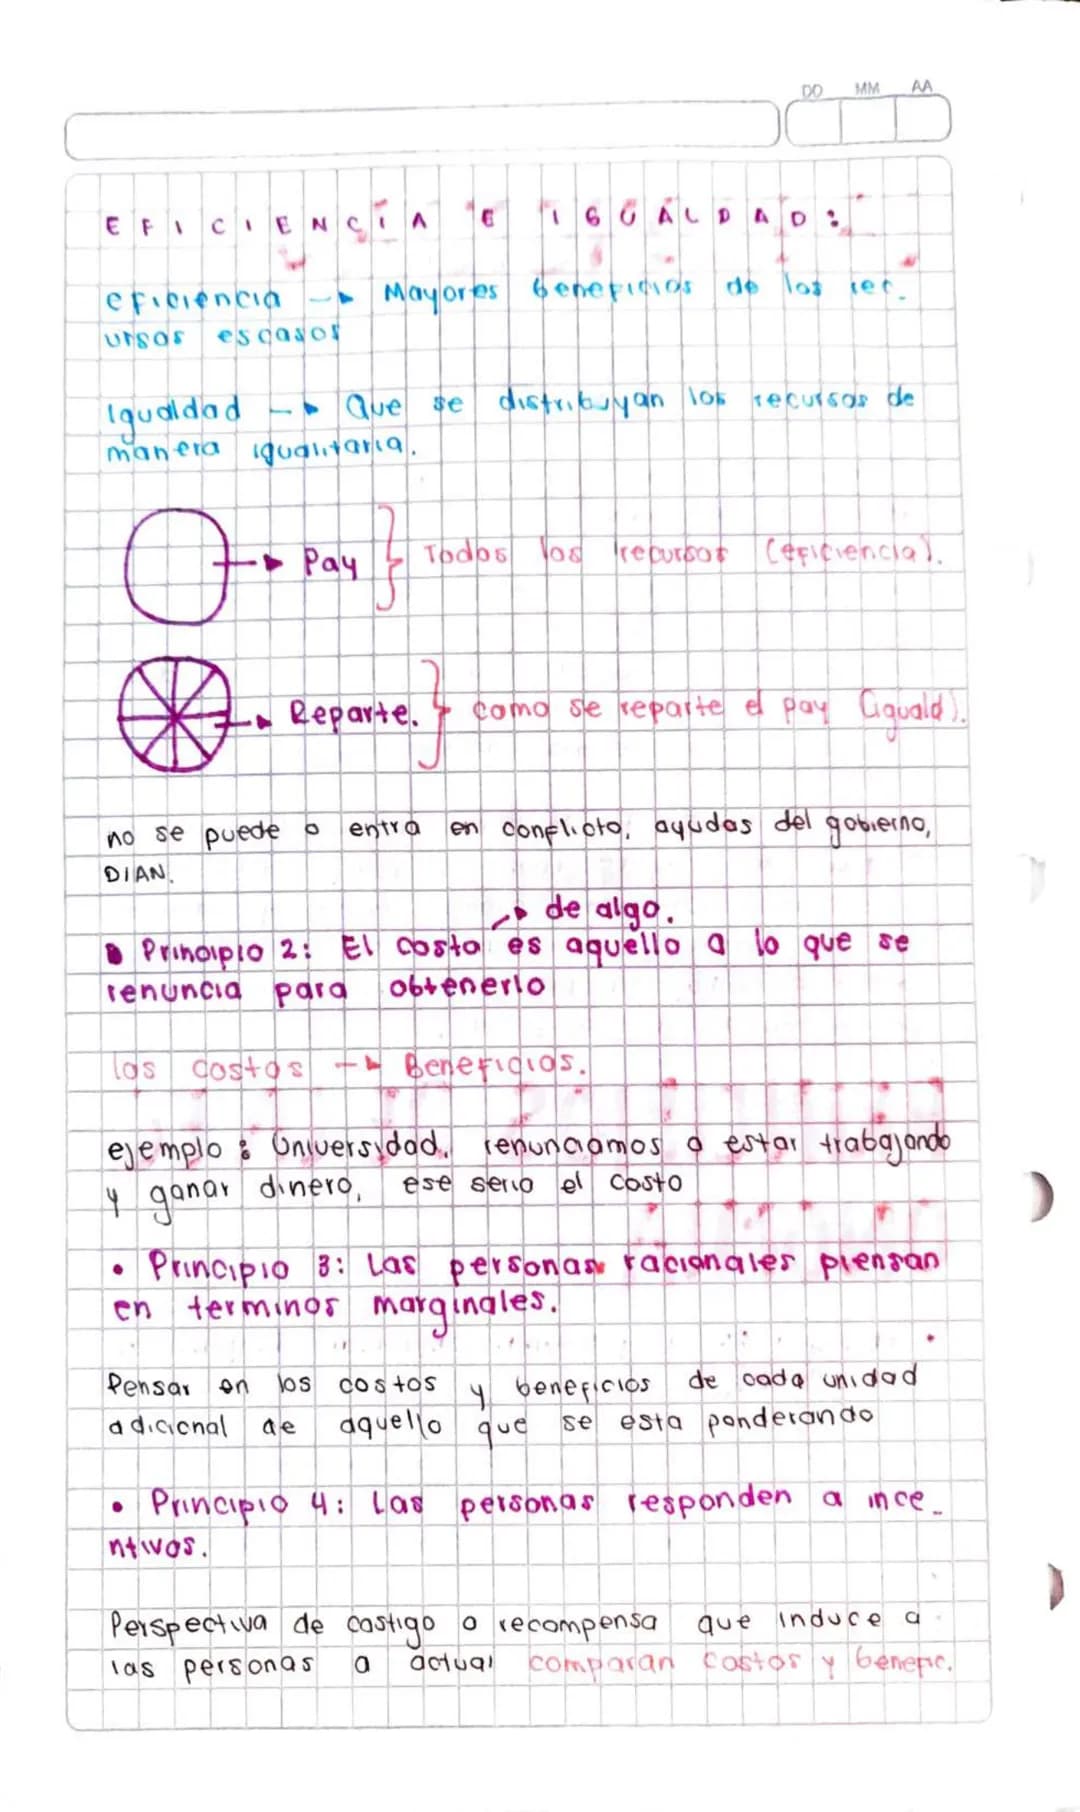 DD MM AA
EFICIENCIA E IGUALDAD:
eficiencia → Mayores beneficios de los rec-
ursos escasos
Igualdad → Que se distribuyan los recursos de
manera igualitaria.
→ Pay } Todos los recursos (eficiencia).
→ Reparte. } como se reparte el pay (iguald).
no se puede o entra en conflicto, ayudas del gobierno,
DIAN.
→ de algo.
Principio 2: El costo es aquello a lo que se
renuncia para obtenerlo
los costos → Beneficios.
ejemplo: Universidad. renunciamos a estar trabajando
y ganar dinero, ese serio el costo
• Principio 3: Las personas racionales piensan
en terminos marginales.
Pensar en los costos y beneficios de cada unidad
adicional de aquello que se esta ponderando
• Principio 4: Las personas responden a ince-
ntivos.
Perspectiva de castigo o recompensa que induce a
las personas a actuar comparan costos y benefic.